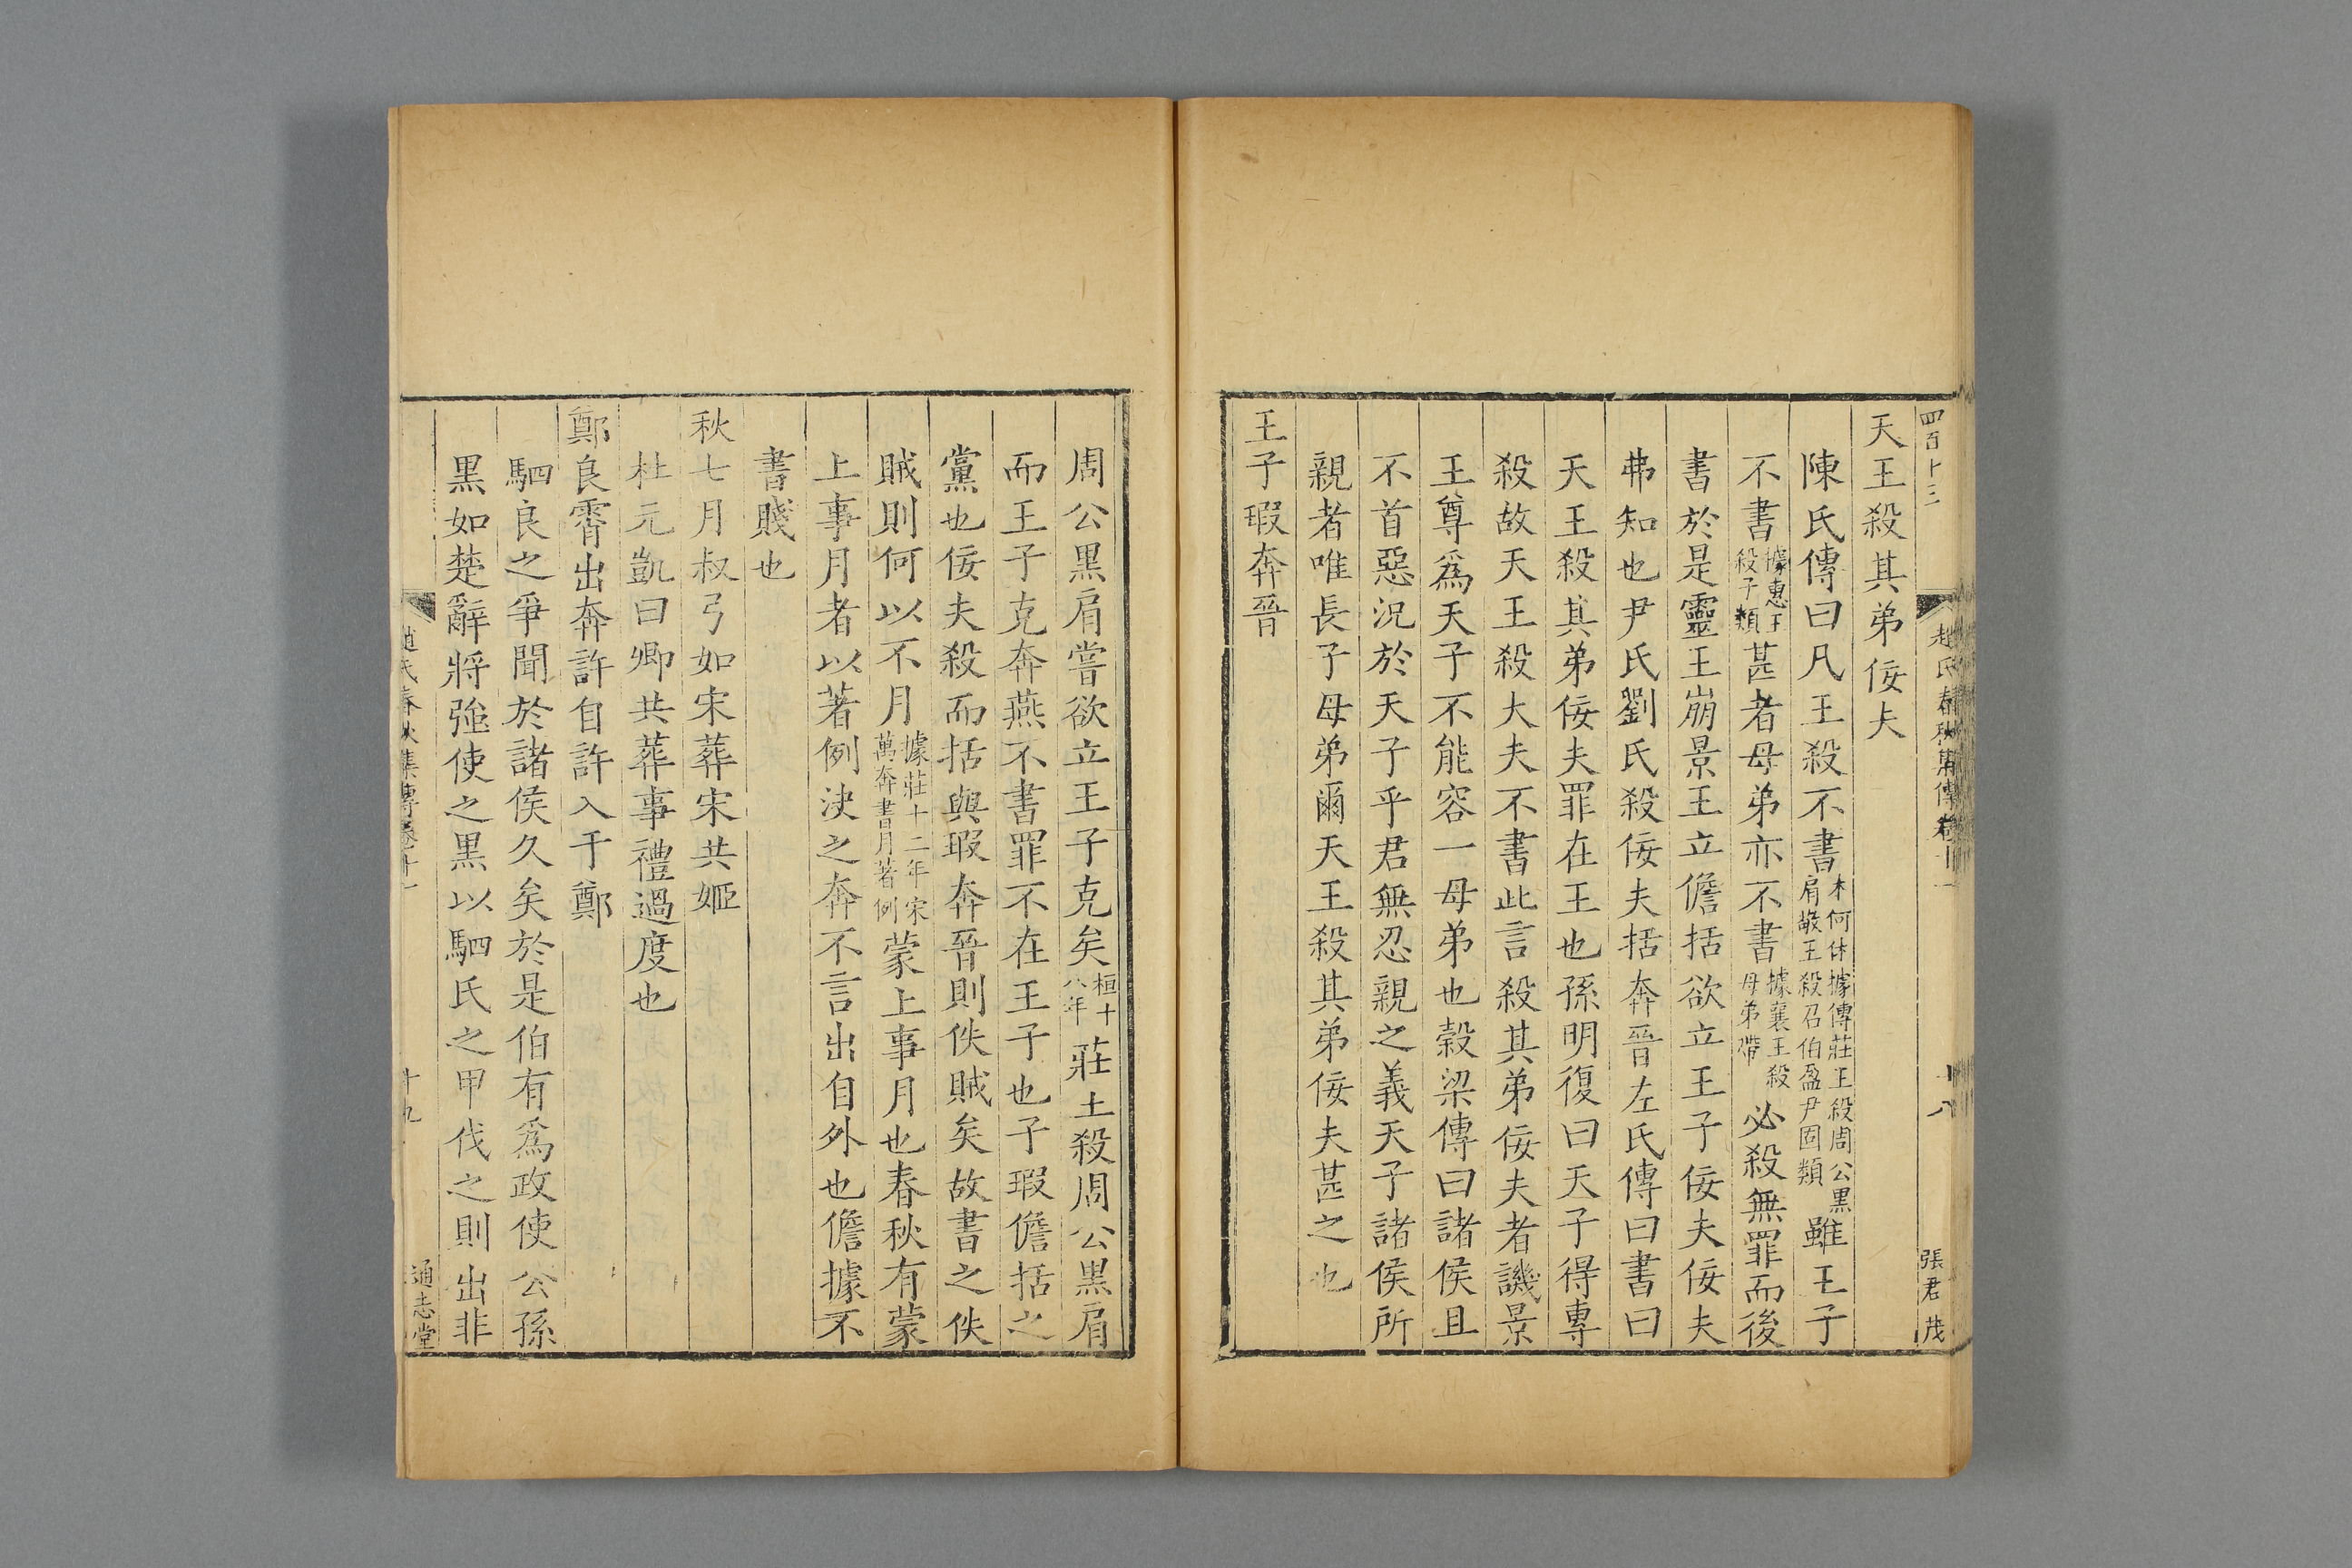 四百十三
趙氏春秋集傳卷十一
十八
張君茂
天王殺其弟佞夫
陳氏傳曰凡王殺不書本何休據傳莊王殺周公黑肩敬王殺召伯盈尹固類雖王子
不書據惠王殺子類甚者母弟亦不書據襄王殺母弟帶必殺無罪而後
書於是靈王崩景王立儋括欲立王子佞夫佞夫
弗知也尹氏劉氏殺佞夫括奔晉左氏傳曰書曰
天王殺其弟佞夫罪在王也孫明復曰天子得專
殺故天王殺大夫不書此言殺其弟佞夫者譏景
王尊爲天子不能容一母弟也穀梁傳曰諸侯且
不首惡況於天子乎君無忍親之義天子諸侯所
親者唯長子母弟爾天王殺其弟佞夫甚之也
王子瑕奔晉
周公黑肩嘗欲立王子克矣桓十八年莊王殺周公黑肩
而王子克奔燕不書罪不在王子也子瑕儋括之
黨也佞夫殺而括與瑕奔晉則佚賊矣故書之佚
賊則何以不月據莊十二年宋萬奔書月著例蒙上事月也春秋有蒙
上事月者以著例決之奔不言出自外也儋據不
書賤也
秋七月叔弓如宋葬宋共姬
杜元凱曰卿共葬事禮過度也
鄭良霄出奔許自許入于鄭
駟良之爭聞於諸侯久矣於是伯有爲政使公孫
黑如楚辭將強使之黑以駟氏之甲伐之則出非
趙氏春秋集傳卷十一
十九
通志堂